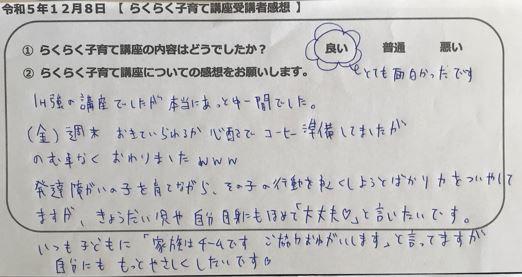 令和5年12月8日 【 らくらく子育て講座受講者感想 】
① らくらく子育て講座の内容はどうでしたか? 良い 普通 悪い
② らくらく子育て講座についての感想をお願いします。 とても面白かったです
1H強の講座でしたが本当にあっと中一間でした。
(金)週末 おきていられるか心配でコーヒー準備してましたが
のむ事なくおわりましたwww
発達障がいの子を育てながら、その子の行動を よくしようとばかり力をついやして
ますが、きょうだい児や自分自身にもほめて「大丈夫♡」と言いたいです。
いつも子どもに「家族はチームです ご協力おねがいします」と言ってますが
自分にももっとやさしくしたいです